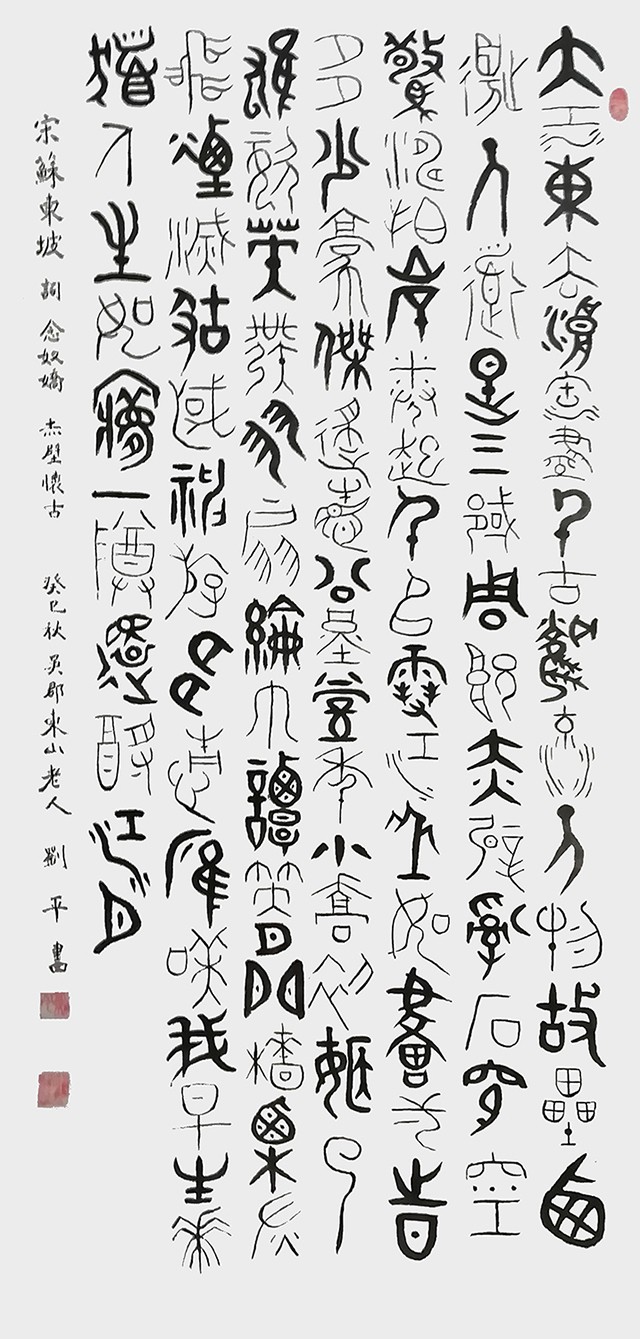 大江東去浪淘盡千古風流人物故壘西
邊人道是三國周郎赤壁亂石穿空
驚濤拍岸捲起千堆雪江山如畫一時
多少豪傑遙想公瑾當年小喬初嫁了
雄姿英發羽扇綸巾談笑間檣櫓灰
飛煙滅故國神遊多情應笑我早生華
髮人生如夢一樽還酹江月
宋蘇東坡詞念奴嬌 赤壁懷古 癸巳秋 吳郡東山老人 劉平書